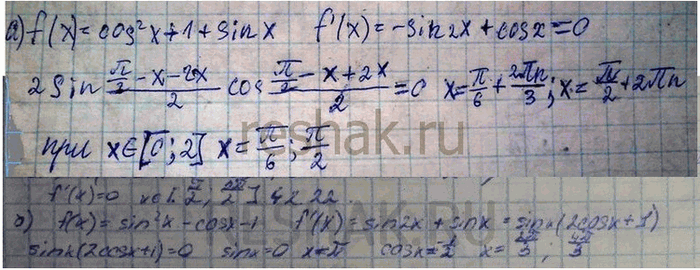 а) f(x)=cos²x+1+sinx f'(x)=-sin2x+cosx=0
2 sin (π/2-x-2x)/2 cos (π/2-x+2x)/2 =0 x=π/6+2πn/3; x=π/2+2πn
при x∈[0;2] x=π/6; π/2
reshak.ru
f'(x)=0
б) f(x)=sin²x-cosx-1 f'(x)=sin2x+sinx=sinx(2cosx+1)
sinx(2cosx+1)=0 sinx=0 x=π cosx=-1/2 x=2π/3; 4π/3